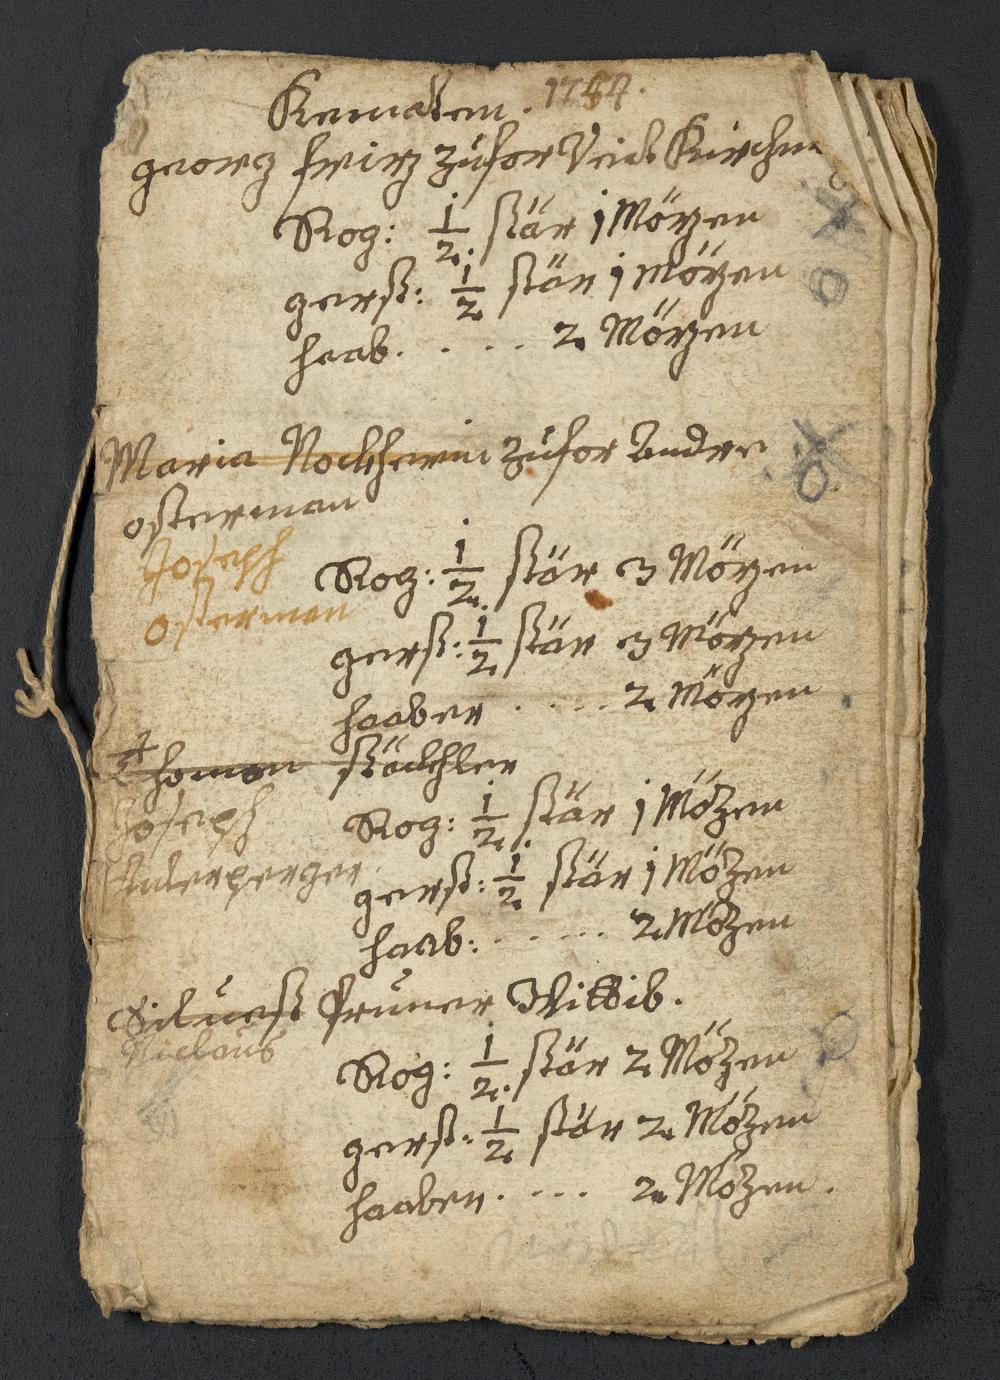 Kematen. 1744.
georg heirz zufor Veit Kirchm
Rog: 1/2. stär j Mözen
gerst: 1/2 stär j Mözen
haab. . . . 2 Mözen
Maria Nockherin zufor Andre
osterman
Joseph
osterman
Rog: 1/2. stär 3 Mözen
gerst: 1/2 stär 3 Mözen
haaber . . . . 2 Mözen
Thoman stöckhler
Joseph
Anterperger
Rog: 1/2. stär j Mözen
gerst: 1/2 stär j Mözen
haab: . . . . . 2 Mözen
Siluest Pruner Wittib.
Niclaus
Rog: 1/2. stär 2 Mözen
gerst: 1/2 stär 2 Mözen
haaber. . . . 2 Mözen.